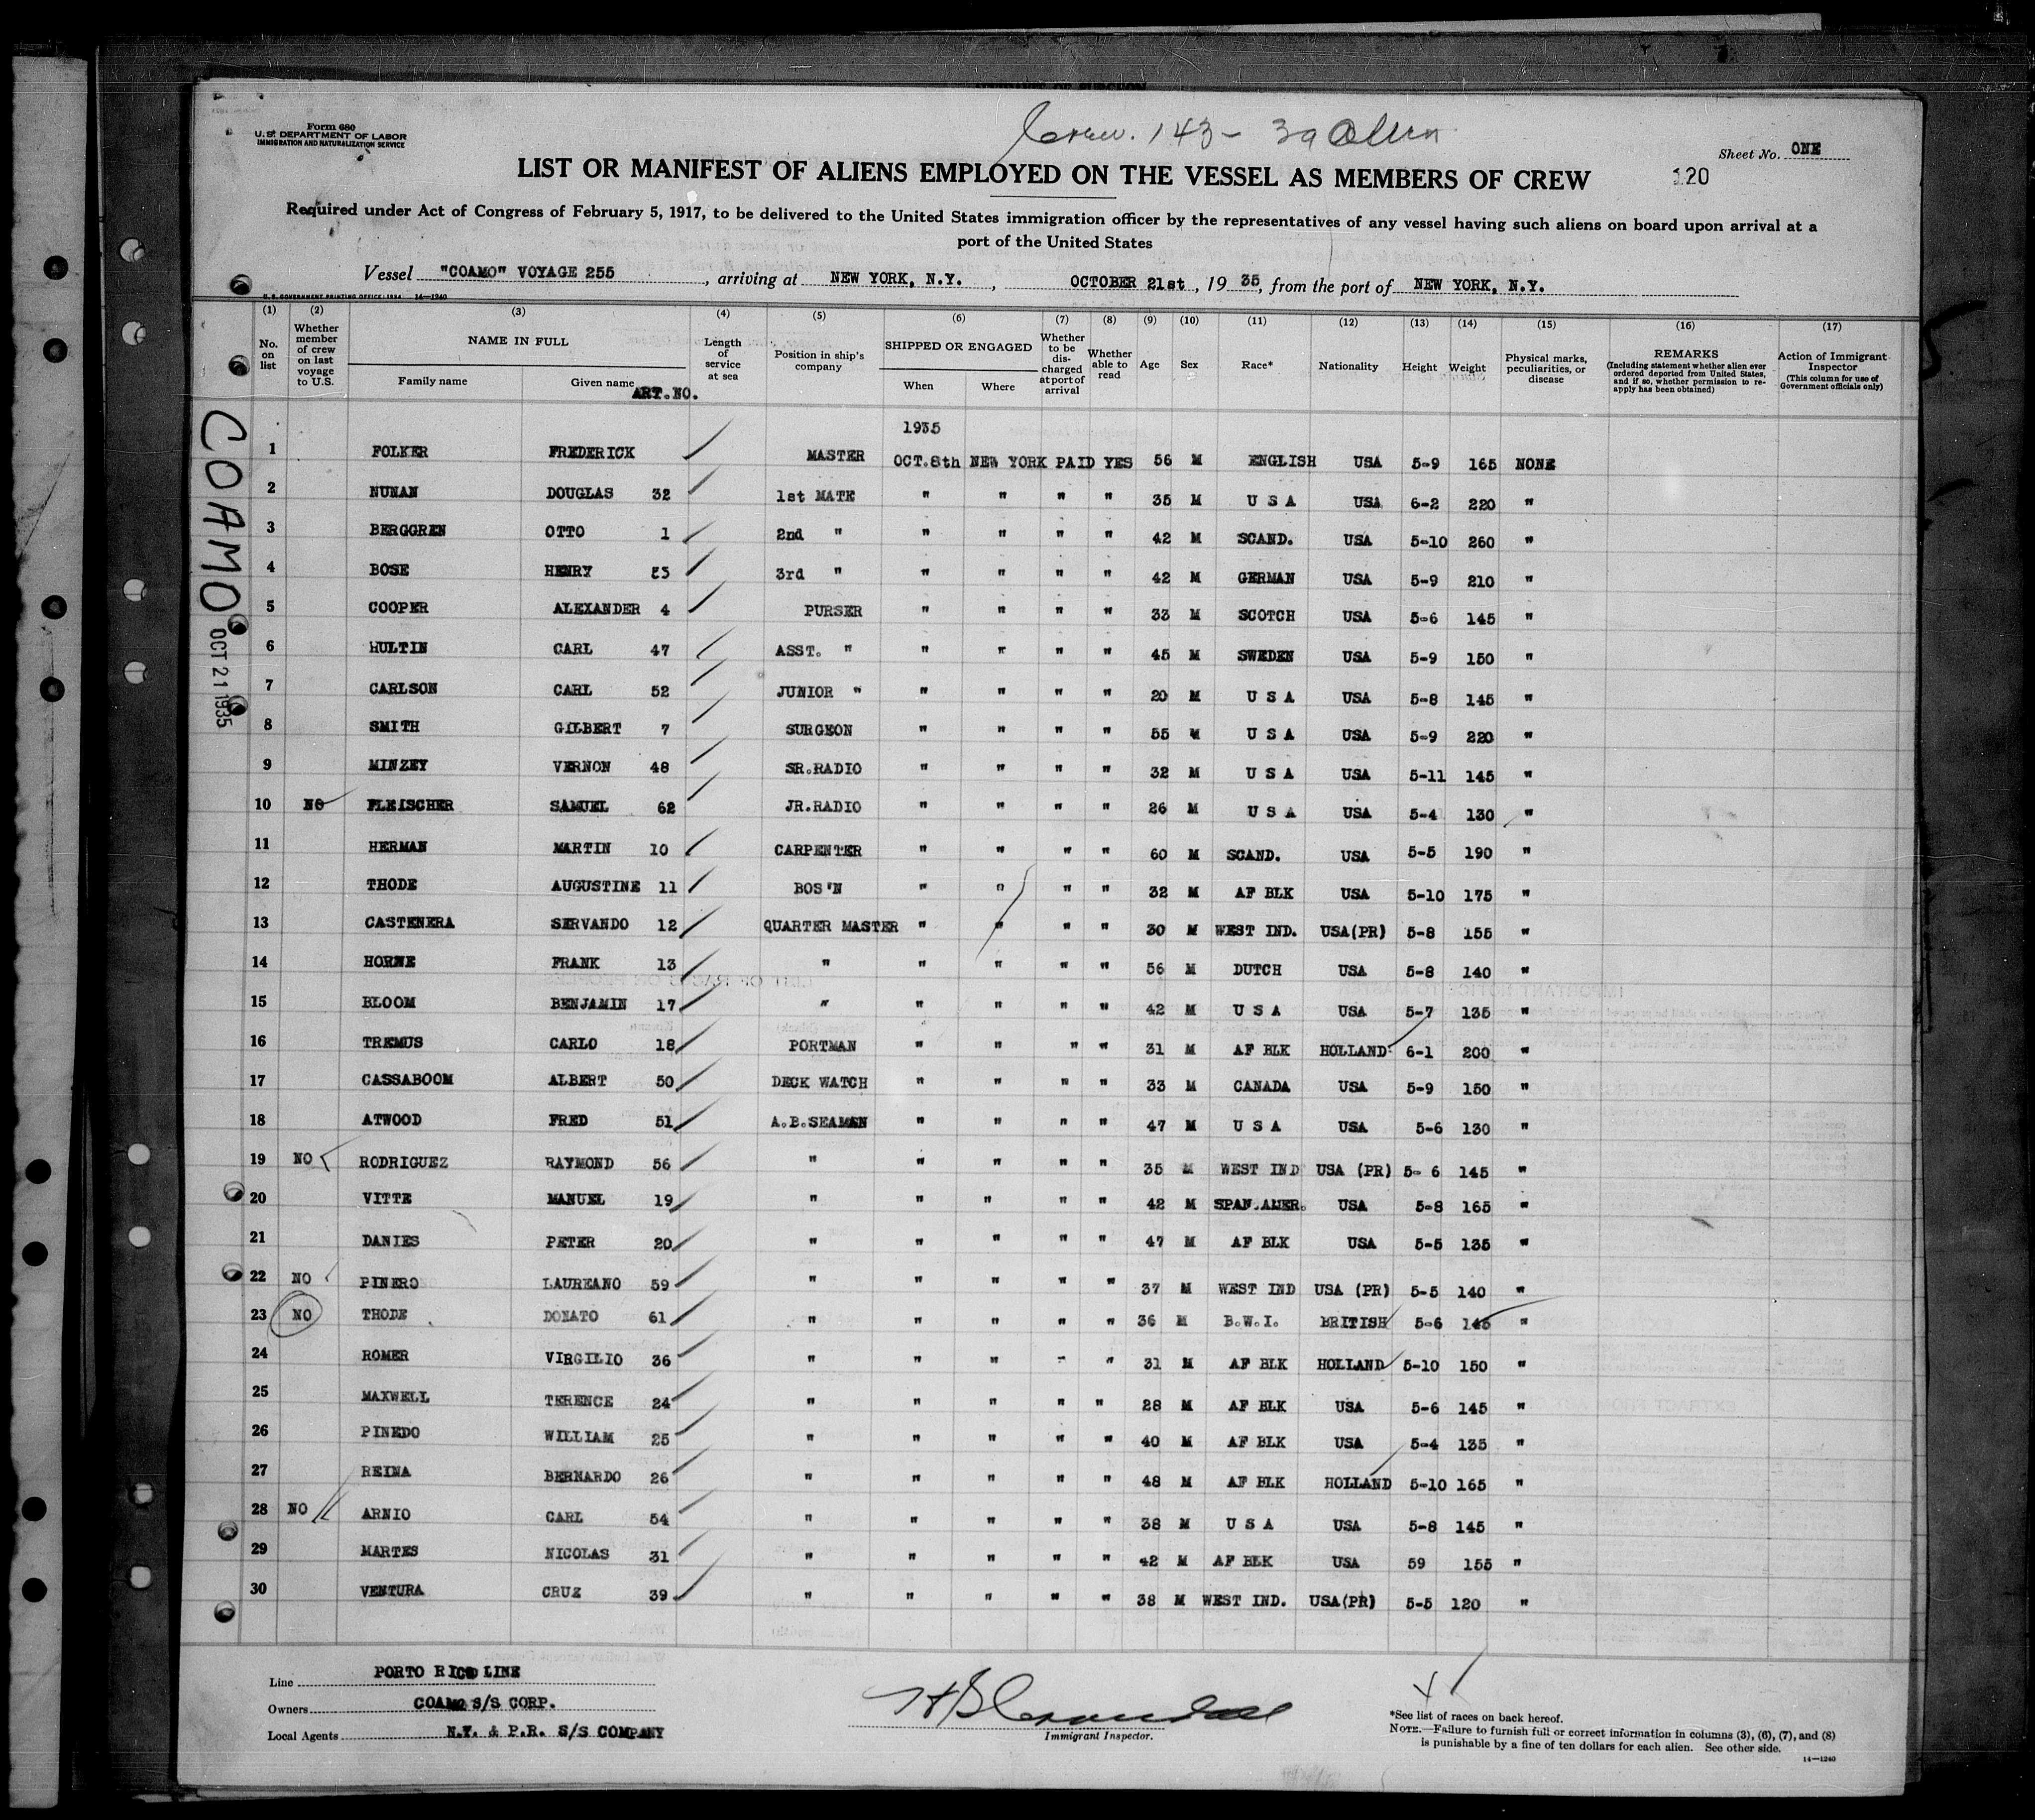 Form 680
U.S. DEPARTMENT OF LABOR
IMMIGRATION AND NATURALIZATION SERVICE
Crew. 143 - 39 Alien
Sheet No. ONE
LIST OR MANIFEST OF ALIENS EMPLOYED ON THE VESSEL AS MEMBERS OF CREW
120
Required under Act of Congress of February 5, 1917, to be delivered to the United States immigration officer by the representatives of any vessel having such aliens on board upon arrival at a
port of the United States
Vessel "COAMO" VOYAGE 255, arriving at NEW YORK, N.Y., OCTOBER 21st, 1935, from the port of NEW YORK, N.Y.
U.S. GOVERNMENT PRINTING OFFICE: 1934 14—1240
(1) (2) (3) (4) (5) (6) (7) (8) (9) (10) (11) (12) (13) (14) (15) (16) (17)
No. on list
Whether member of crew on last voyage to U.S.
NAME IN FULL
Family name
Given name
ART.NO.
Length of service at sea
Position in ship's company
SHIPPED OR ENGAGED
When
Where
Whether to be discharged at port of arrival
Whether able to read
Age
Sex
Race*
Nationality
Height
Weight
Physical marks, peculiarities, or disease
REMARKS
(Including statement whether alien ever ordered deported from United States, and if so, whether permission to re-apply has been obtained)
Action of Immigrant Inspector
(This column for use of Government officials only)
COAMO
OCT 21 1935
1935
1 FOLKER FREDERICK MASTER OCT.8th NEW YORK PAID YES 56 M ENGLISH USA 5-9 165 NONE
2 NUNAN DOUGLAS 32 1st MATE " " " " 35 M U S A USA 6-2 220 "
3 BERGGREN OTTO 1 2nd " " " " " 42 M SCAND. USA 5-10 260 "
4 BOSE HENRY 53 3rd " " " " " 42 M GERMAN USA 5-9 210 "
5 COOPER ALEXANDER 4 PURSER " " " " 33 M SCOTCH USA 5-6 145 "
6 HULTIN CARL 47 ASST. " " " " " 45 M SWEDEN USA 5-9 150 "
7 CARLSON CARL 52 JUNIOR " " " " " 20 M U S A USA 5-8 145 "
8 SMITH GILBERT 7 SURGEON " " " " 55 M U S A USA 5-9 220 "
9 MINZEY VERNON 48 SR.RADIO " " " " 32 M U S A USA 5-11 145 "
10 NO FLEISCHER SAMUEL 62 JR.RADIO " " " " 26 M U S A USA 5-4 130 "
11 HERMAN MARTIN 10 CARPENTER " " " " 60 M SCAND. USA 5-5 190 "
12 THODE AUGUSTINE 11 BOS'N " " " " 32 M AF BLK USA 5-10 175 "
13 CASTENERA SERVANDO 12 QUARTER MASTER " " " " 30 M WEST IND. USA(PR) 5-8 155 "
14 HORNE FRANK 13 " " " " " 56 M DUTCH USA 5-8 140 "
15 BLOOM BENJAMIN 17 " " " " " 42 M U S A USA 5-7 135 "
16 TREMUS CARLO 18 PORTMAN " " " " 31 M AF BLK HOLLAND 6-1 200 "
17 CASSABOOM ALBERT 50 DECK WATCH " " " " 33 M CANADA USA 5-9 150 "
18 ATWOOD FRED 51 A.B.SEAMEN " " " " 47 M U S A USA 5-6 130 "
19 NO RODRIGUEZ RAYMOND 56 " " " " " 35 M WEST IND USA (PR) 5-6 145 "
20 VITTE MANUEL 19 " " " " " 42 M SPAN.AMER. USA 5-8 165 "
21 DANIES PETER 20 " " " " " 47 M AF BLK USA 5-5 135 "
22 NO PINERO LAUREANO 59 " " " " " 37 M WEST IND USA (PR) 5-5 140 "
23 NO THODE DONATO 61 " " " " " 36 M B.W.I. BRITISH 5-6 145 "
24 ROMER VIRGILIO 36 " " " " " 31 M AF BLK HOLLAND 5-10 150 "
25 MAXWELL TERENCE 24 " " " " " 28 M AF BLK USA 5-6 145 "
26 PINEDO WILLIAM 25 " " " " " 40 M AF BLK USA 5-4 135 "
27 REINA BERNARDO 26 " " " " " 48 M AF BLK HOLLAND 5-10 165 "
28 NO ARNIO CARL 54 " " " " " 38 M U S A USA 5-8 145 "
29 MARTES NICOLAS 31 " " " " " 42 M AF BLK USA 59 155 "
30 VENTURA CRUZ 39 " " " " " 38 M WEST IND. USA(PR) 5-5 120 "
Line PORTO RICO LINE
Owners COAMO S/S CORP.
Local Agents N.Y. & P.R. S/S COMPANY
Immigrant Inspector.
*See list of races on back hereof.
NOTE.—Failure to furnish full or correct information in columns (3), (6), (7), and (8)
is punishable by a fine of ten dollars for each alien. See other side.
14—1240